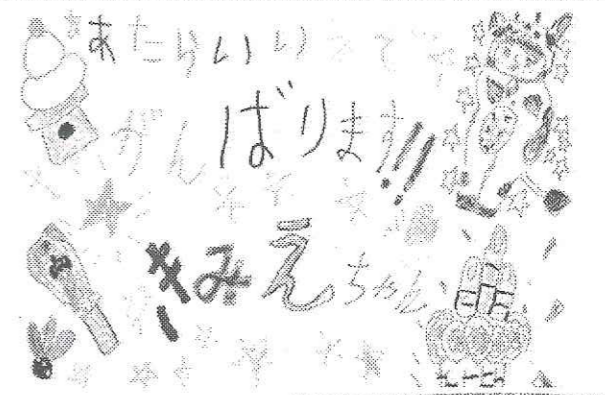 あたらいいえでも
がんばります!!
きみえちゃん